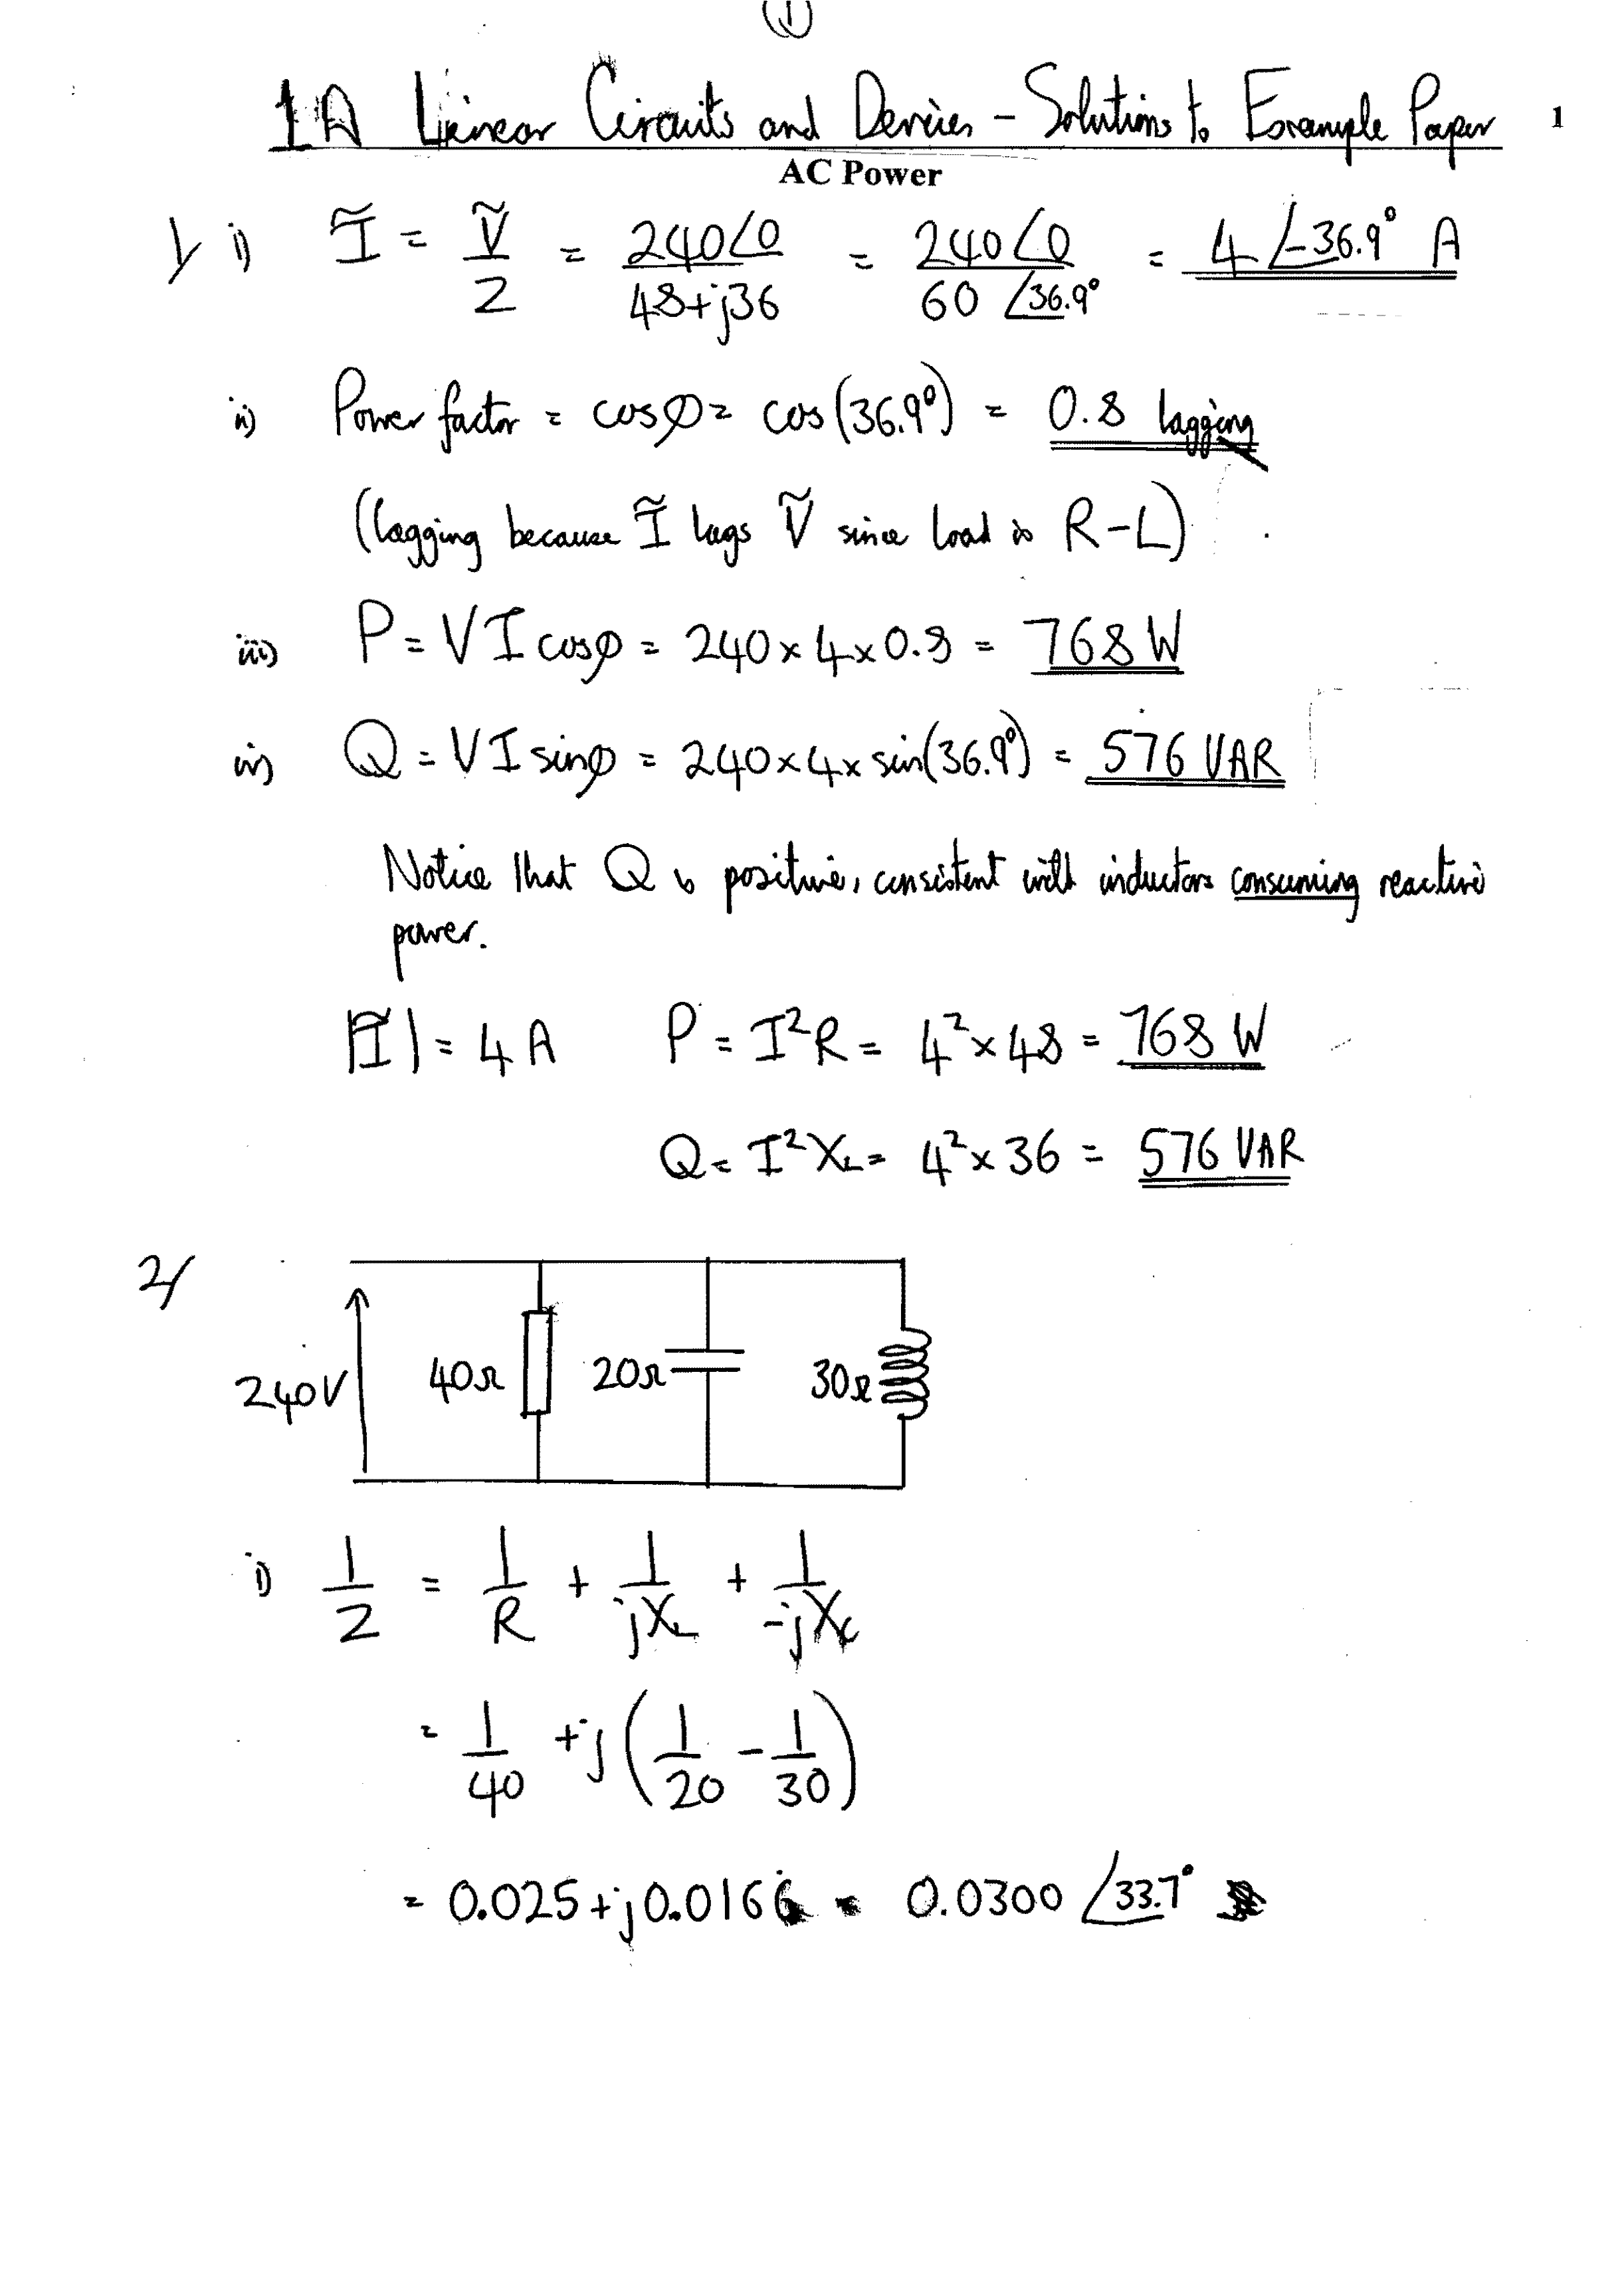 ①
1A Linear Circuits and Devices - Solutions to Example Paper 1
AC Power
1/ i) Ĩ = Ṽ/Z = 240∠0/(48+j36) = 240∠0/(60∠36.9°) = 4∠-36.9° A
ii) Power factor = cosφ = cos(36.9°) = 0.8 lagging
(lagging because Ĩ lags Ṽ since load is R-L)
iii) P = VI cosφ = 240 x 4 x 0.8 = 768 W
iv) Q = VI sinφ = 240 x 4 x sin(36.9°) = 576 VAR
Notice that Q is positive, consistent with inductors consuming reactive
power.
|Ĩ| = 4 A P = I²R = 4² x 48 = 768 W
Q = I²X_L = 4² x 36 = 576 VAR
2/
240V 40Ω 20Ω 30Ω
i) 1/Z = 1/R + 1/jX_L + 1/-jX_C
= 1/40 + j(1/20 - 1/30)
= 0.025 + j0.0166 = 0.0300∠33.7°